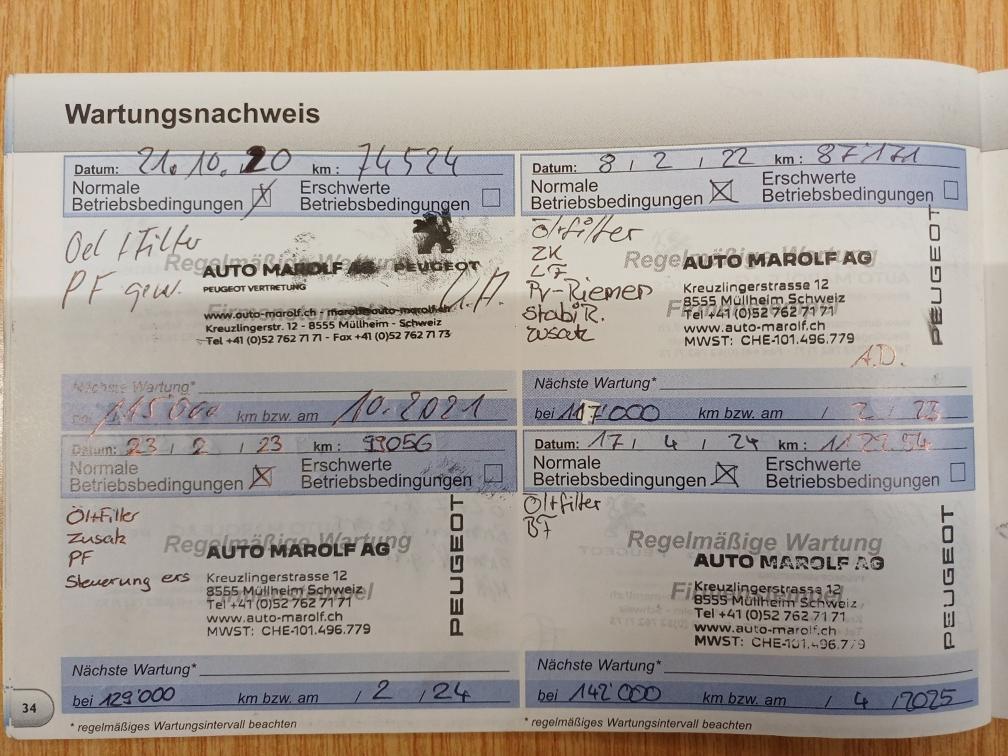 Wartungsnachweis
Datum: 21.10.20 km: 74524
Normale Betriebsbedingungen
Erschwerte Betriebsbedingungen
Oel + Filter
PF gew.
Regelmäßige Wartung
AUTO MAROLF AG PEUGEOT
PEUGEOT VERTRETUNG
www.auto-marolf.ch - marolf@auto-marolf.ch
Kreuzlingerstr. 12 - 8555 Müllheim - Schweiz
Tel +41 (0)52 762 71 71 - Fax +41 (0)52 762 71 73
Nächste Wartung*
115'000 km bzw. am 10.2021
Datum: 8 / 2 / 22 km: 87171
Normale Betriebsbedingungen
Erschwerte Betriebsbedingungen
Öl+filter
ZK
LF
Pv-Riemen
Stabi R.
Zusatz
Regelmäßige Wartung
AUTO MAROLF AG
Kreuzlingerstrasse 12
8555 Müllheim Schweiz
Tel +41 (0)52 762 71 71
www.auto-marolf.ch
MWST: CHE-101.496.779
PEUGEOT
A.D.
Nächste Wartung*
bei 117'000 km bzw. am / 2 / 23
Datum: 23 / 2 / 23 km: 99056
Normale Betriebsbedingungen
Erschwerte Betriebsbedingungen
Öl+Filter
Zusatz
PF
Steuerung ers
Regelmäßige Wartung
AUTO MAROLF AG
Kreuzlingerstrasse 12
8555 Müllheim Schweiz
Tel +41 (0)52 762 71 71
www.auto-marolf.ch
MWST: CHE-101.496.779
PEUGEOT
Nächste Wartung*
bei 129'000 km bzw. am / 2 / 24
* regelmäßiges Wartungsintervall beachten
Datum: 17 / 4 / 24 km:
Normale Betriebsbedingungen
Erschwerte Betriebsbedingungen
Öl+filter
BF
Regelmäßige Wartung
AUTO MAROLF AG
Kreuzlingerstrasse 12
8555 Müllheim Schweiz
Tel +41 (0)52 762 71 71
www.auto-marolf.ch
MWST: CHE-101.496.779
PEUGEOT
Nächste Wartung*
bei 142'000 km bzw. am / 4 / 2025
* regelmäßiges Wartungsintervall beachten
34